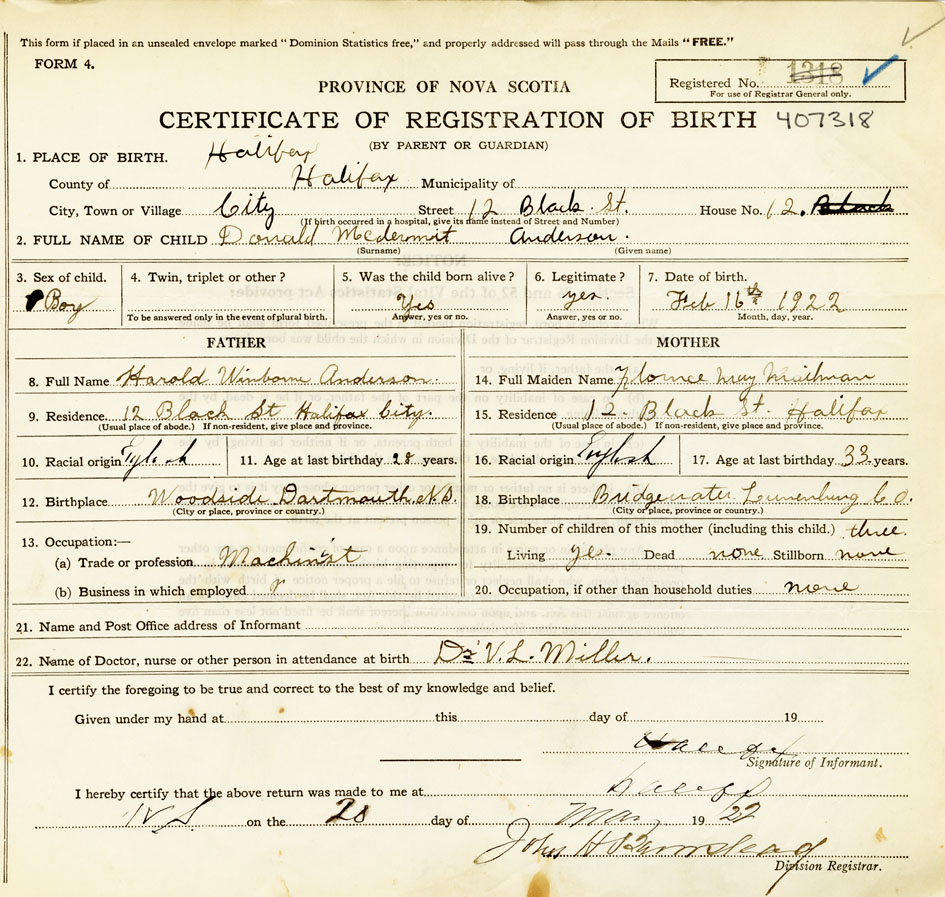 This form if placed in an unsealed envelope marked "Dominion Statistics free," and properly addressed will pass through the Mails "FREE."
FORM 4.
Registered No. 1318
For use of Registrar General only.
PROVINCE OF NOVA SCOTIA
CERTIFICATE OF REGISTRATION OF BIRTH 407318
(BY PARENT OR GUARDIAN)
1. PLACE OF BIRTH. Halifax
County of Halifax Municipality of
City, Town or Village City Street 12 Black St. House No. 12. Black
(If birth occurred in a hospital, give its name instead of Street and Number)
2. FULL NAME OF CHILD Donald Mcdermit Anderson.
(Surname) (Given name)
3. Sex of child. 4. Twin, triplet or other? 5. Was the child born alive? 6. Legitimate? 7. Date of birth.
Boy Yes yes. Feb 16th 1922
To be answered only in the event of plural birth. Answer, yes or no. Answer, yes or no. Month, day, year.
FATHER MOTHER
8. Full Name Harold Winborne Anderson. 14. Full Maiden Name Florence May Mailman
9. Residence. 12 Black St Halifax City. 15. Residence 12. Black St. Halifax
(Usual place of abode.) If non-resident, give place and province. (Usual place of abode.) If non-resident, give place and province.
10. Racial origin English 11. Age at last birthday 28 years. 16. Racial origin English 17. Age at last birthday 33 years.
12. Birthplace Woodside Dartmouth N.S. 18. Birthplace Bridgewater Lunenburg Co.
(City or place, province or country.) (City or place, province or country.)
13. Occupation:— 19. Number of children of this mother (including this child.) three.
(a) Trade or profession Machinist Living yes. Dead none Stillborn none
(b) Business in which employed 20. Occupation, if other than household duties none
21. Name and Post Office address of Informant
22. Name of Doctor, nurse or other person in attendance at birth Dr. V. L. Miller.
I certify the foregoing to be true and correct to the best of my knowledge and belief.
Given under my hand at this day of 19
Signature of Informant.
I hereby certify that the above return was made to me at Halifax
N S on the 20 day of Mar 19 22
John H Barnstead
Division Registrar.